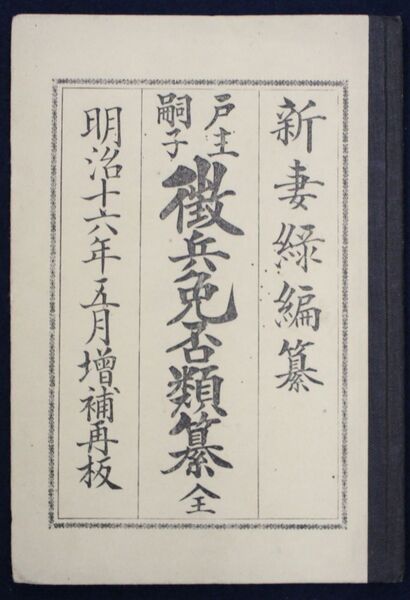 新妻緑編纂
戸主
嗣子
徴兵免否類纂 全
明治十六年五月增補再板